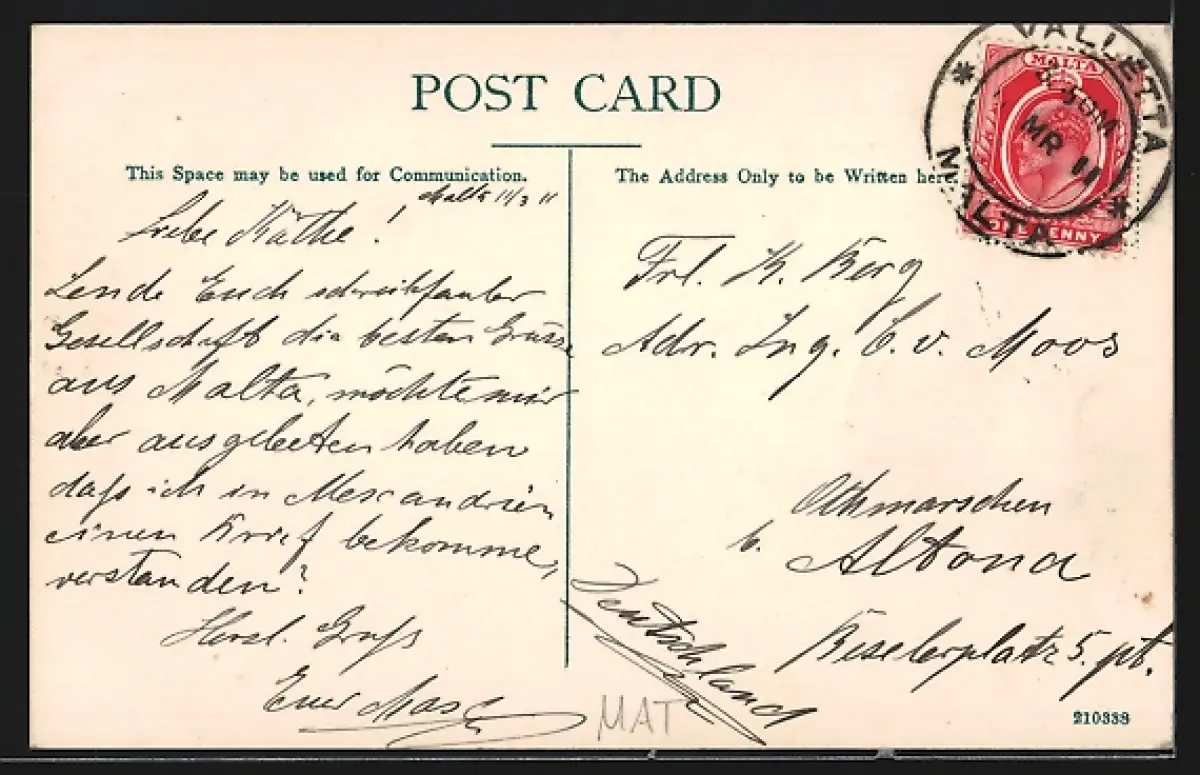 POST CARD
This Space may be used for Communication.
The Address Only to be Written here.
VALLETTA
MALTA
MR 11
MALTA
ONE PENNY
Malta 11/3 11
Liebe Käthe!
Sende Euch schreibfauler
Gesellschaft die besten Grüsse
aus Malta, möchte mir
aber ausgebeten haben
daß ich in Alexandrien
einen Brief bekomme,
verstanden?
Herzl. Gruß
Euer
Frl. K. Berg
Adr. Ing. C. v. Moos
Othmarschen
b. Altona
Beselerplatz 5. pt.
Deutschland
MAT
210338